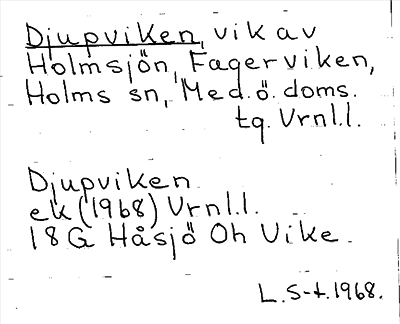 Djupviken, vik av
Holmsjön, Fagerviken,
Holms sn, Med.ö. doms.
tq. Vrnl.l.
Djupviken
ek (1968) Vrnl.l.
18G Håsjö Oh Vike.
L.S-t.1968.